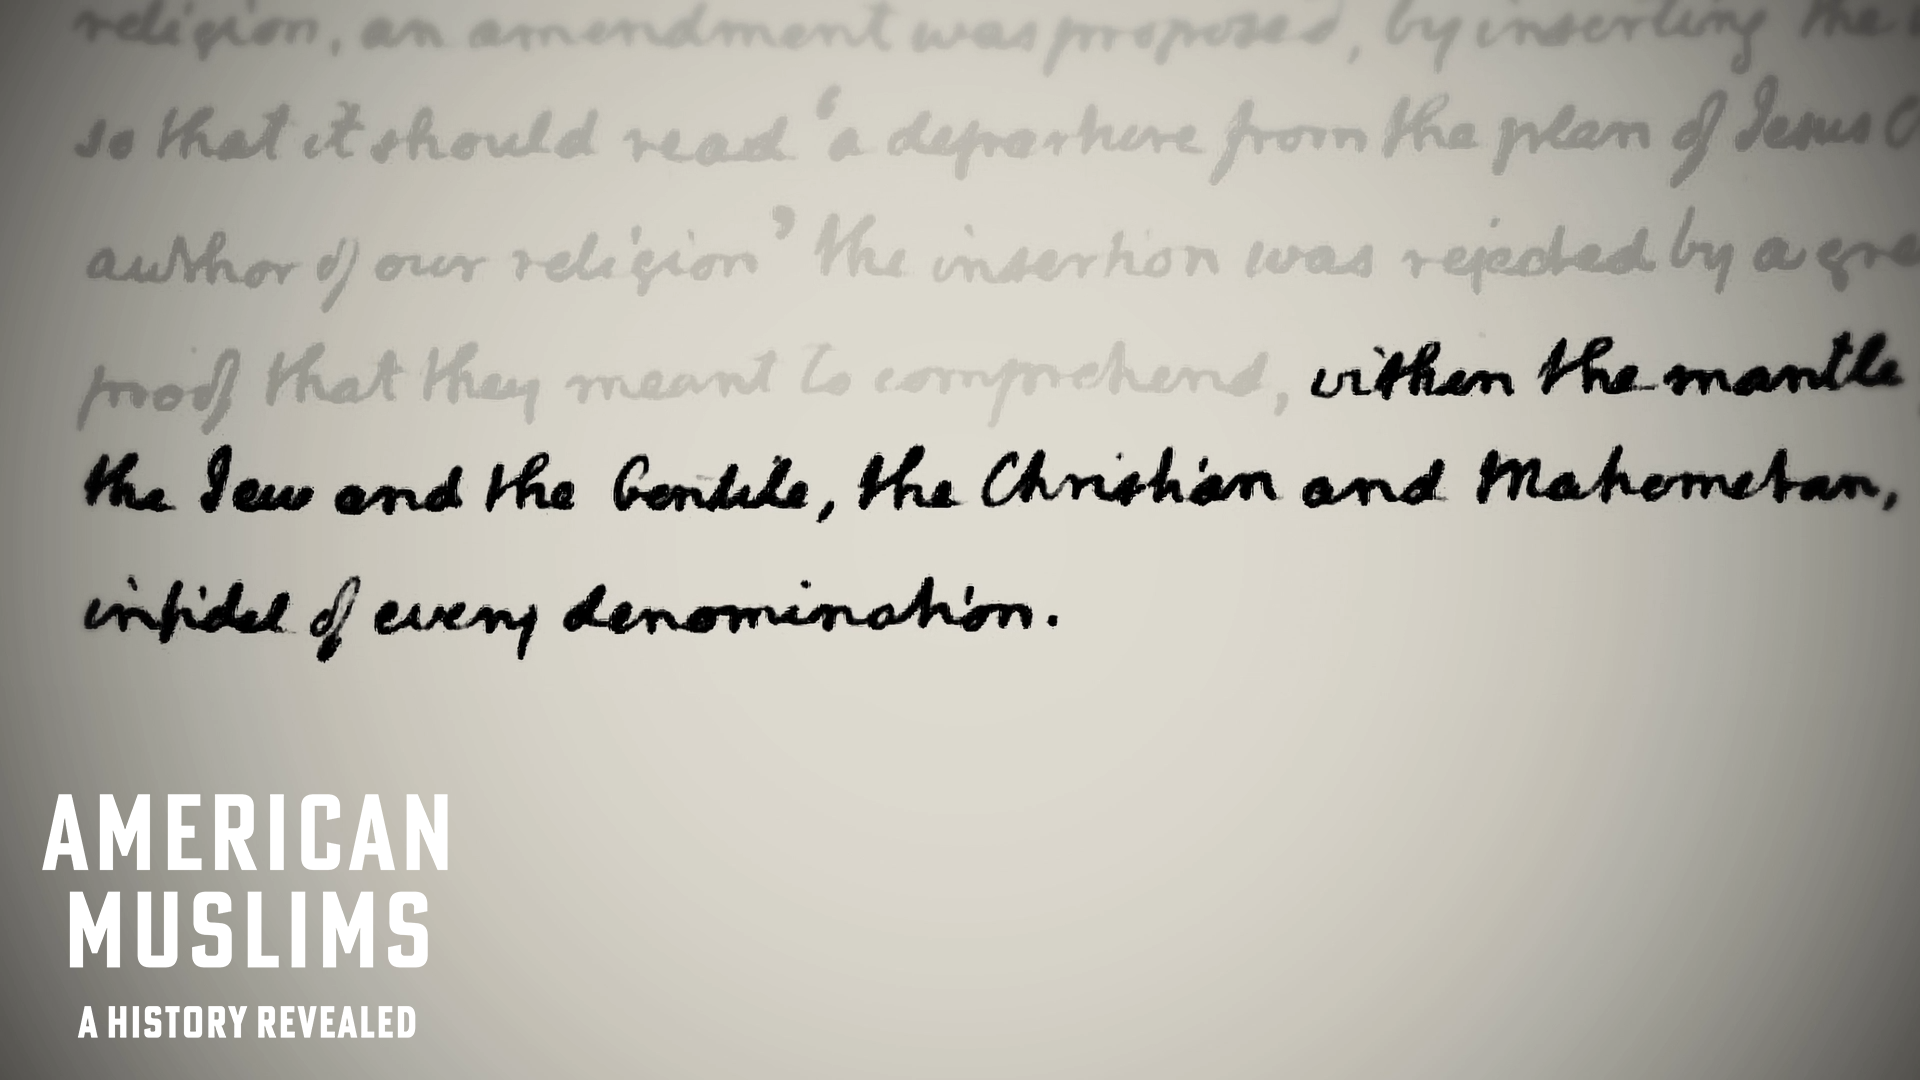 religion, an amendment was proposed, by inserting the
so that it should read 'a departure from the plan of Jesus
author of our religion' the insertion was rejected by a gre
proof that they meant to comprehend, within the mantle
the Jew and the Gentile, the Christian and Mahometan,
infidel of every denomination.
AMERICAN
MUSLIMS
A HISTORY REVEALED